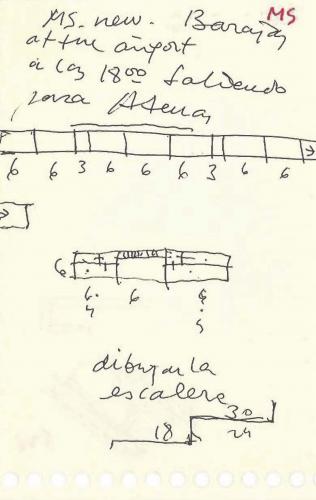 MS
MS. new. Barajas
at the airport
a las 1800 saliendo
para Atenas
6 6 3 6 6 3 6 6
6
6. 6 6
dibujar la
escalera
30
18 24